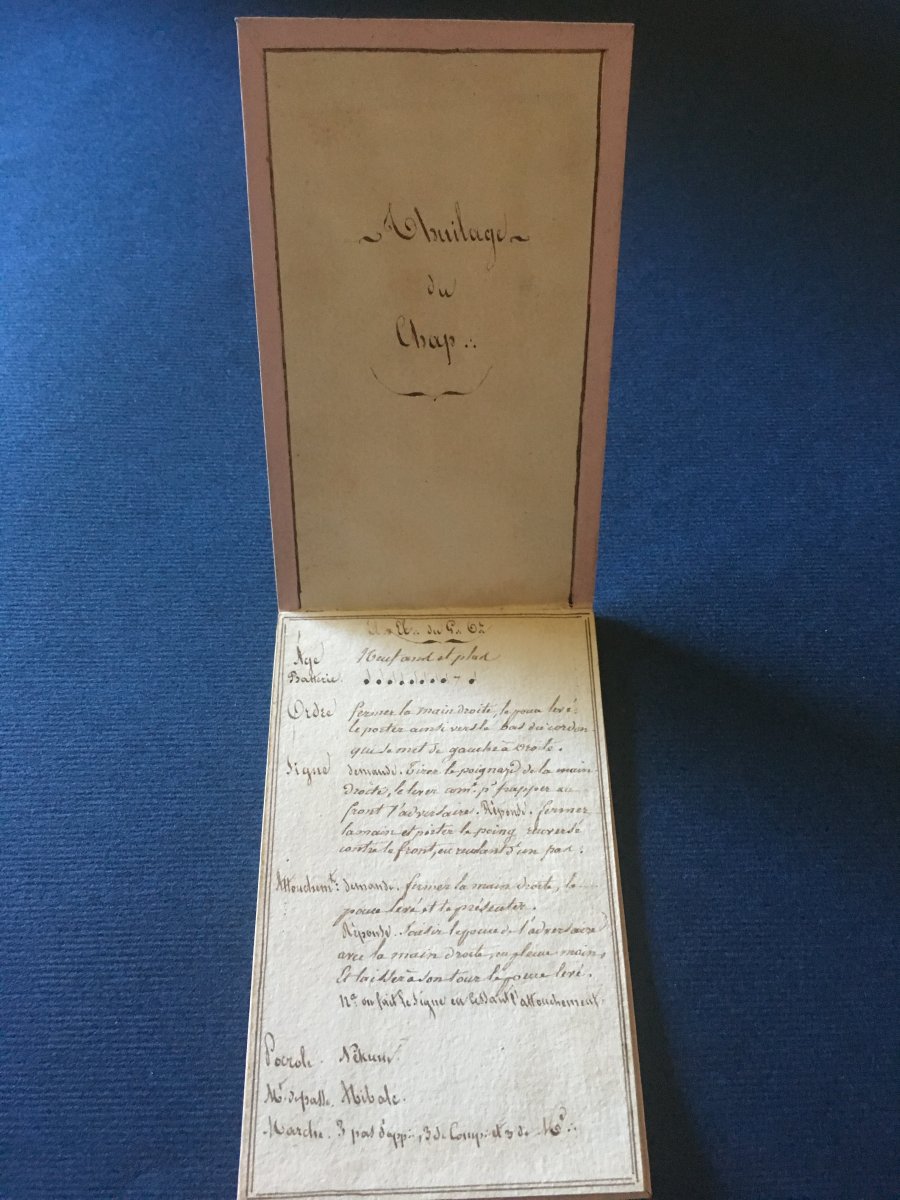 Thuilage
du
Chap∴
Age Neuf ans et plus
Batterie.
Ordre fermer la main droite, le pouce levé
le porter ainsi vers le bas du cordon
qui se met de gauche à droite.
Signe demande. Tirer le poignard de la main
droite, le lever com.e p.r frapper au
front l'adversaire. Réponse. fermer
la main et porter le poing renversé
contre le front, en reculant d'un pas.
Attouchem.t demande. fermer la main droite, le
pouce levé et le présenter.
Réponse. Saisir le pouce de l'adversaire
avec la main droite, en pleine main,
Et laisser à son tour le pouce levé.
on fait le Signe en cessant l'attouchement.
Parole. Nekum
M.t de passe. Hibale.
Marche. 3 pas d'app∴, 3 de Comp∴ et 3 de M∴